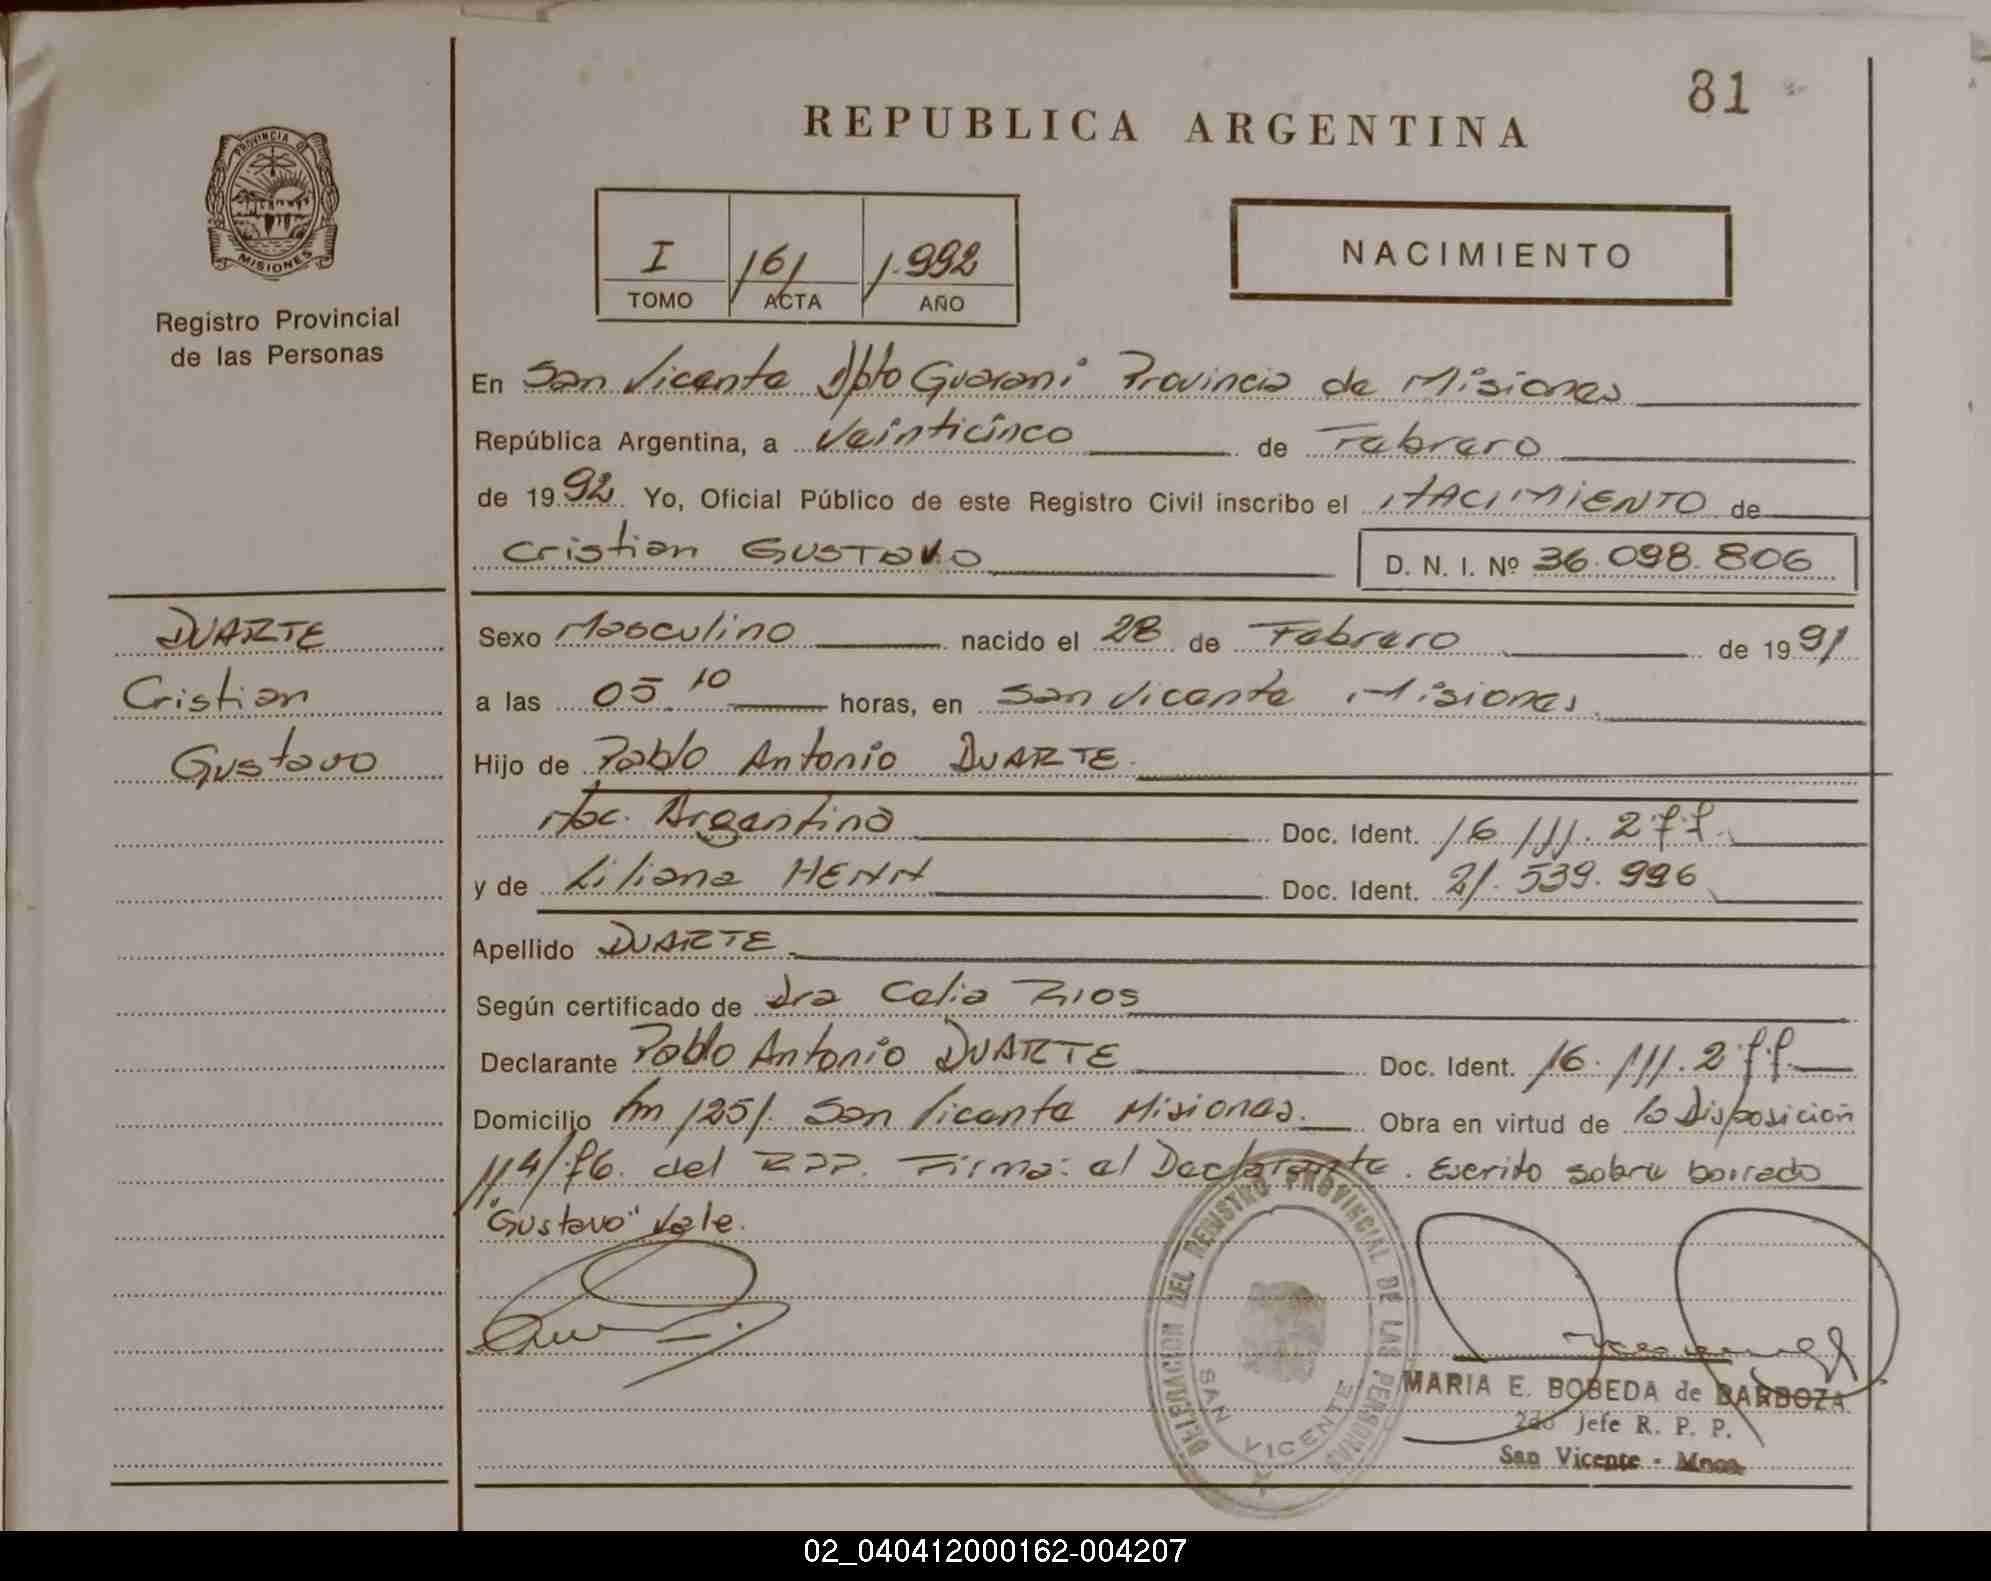 81
REPUBLICA ARGENTINA
PROVINCIA DE
MISIONES
Registro Provincial
de las Personas
I 161 1.992
TOMO ACTA AÑO
NACIMIENTO
En San Vicente Dpto Guarani Provincia de Misiones
República Argentina, a Veinticinco de Febrero
de 1992 Yo, Oficial Público de este Registro Civil inscribo el NACIMIENTO de
Cristian GUSTAVO D. N. I. Nº 36.098.806
DUARTE
Cristian
Gustavo
Sexo Masculino nacido el 28 de Febrero de 1991
a las 05.10 horas, en San Vicente Misiones
Hijo de Pablo Antonio DUARTE
Nac. Argentina Doc. Ident. 16.111.277
y de Liliana HENN Doc. Ident. 21.539.996
Apellido DUARTE
Según certificado de Dra Celia Rios
Declarante Pablo Antonio DUARTE Doc. Ident. 16.111.277
Domicilio Km 1251. San Vicente Misiones. Obra en virtud de la Disposición
del RPP. Firma: el Declarante. Escrito sobre borrado
"Gustavo" Vale.
DELEGACION DEL REGISTRO PROVINCIAL DE LAS PERSONAS
SAN VICENTE
MARIA E. BOBEDA de BARBOZA
2do Jefe R. P. P.
San Vicente - Mnes.
02_040412000162-004207